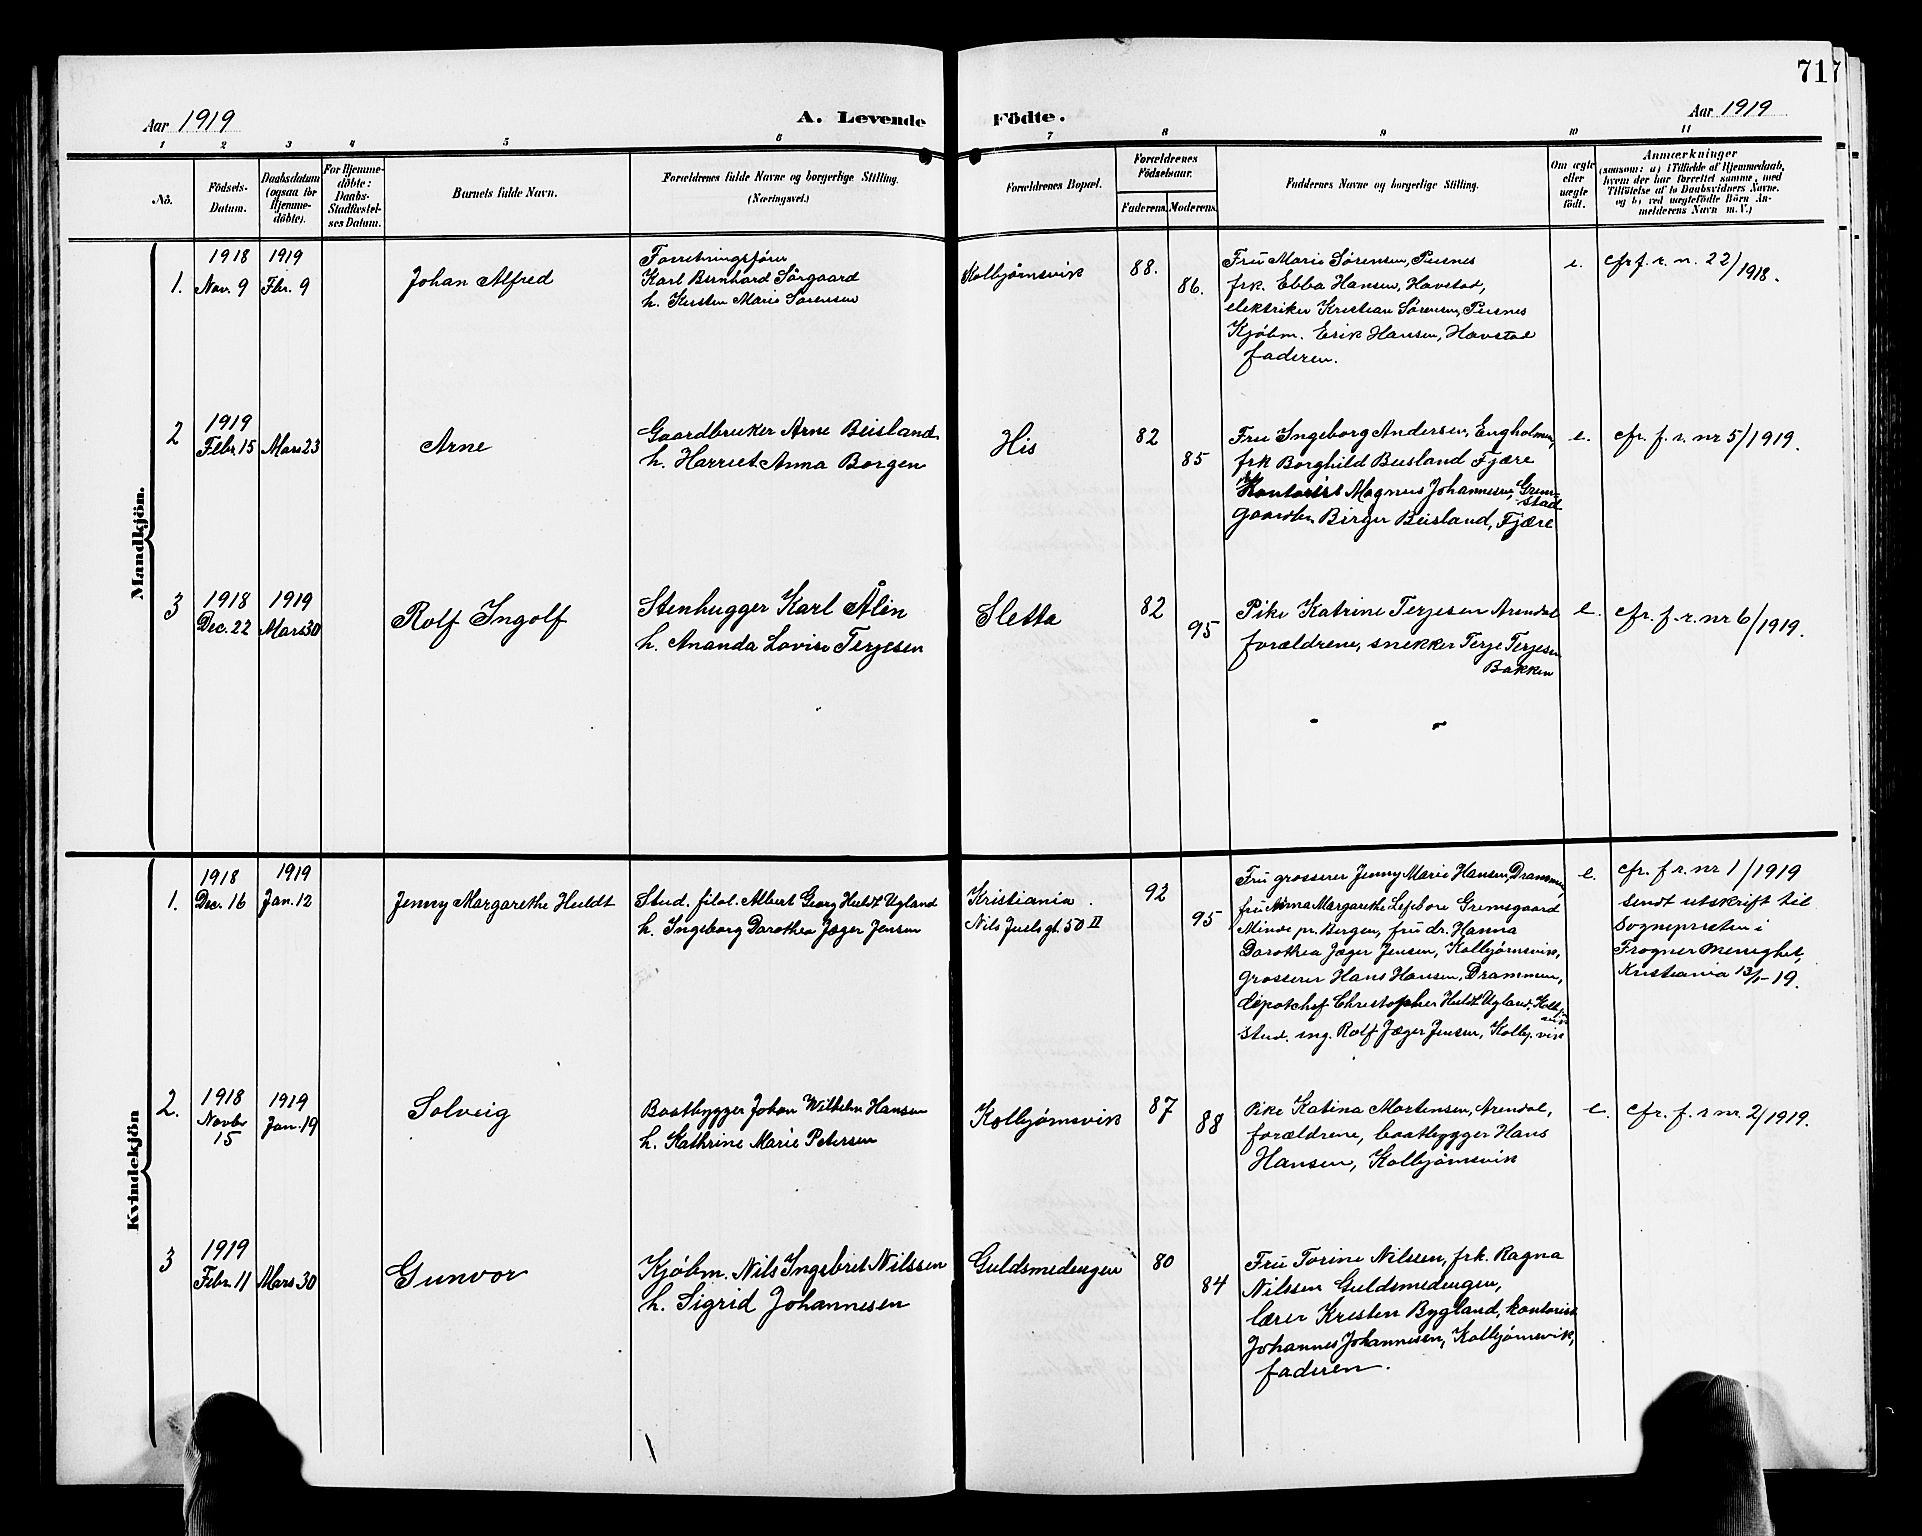 71
7
Aar 1919
A. Levende Födte.
Aar 1919
1 2 3 4 5 6 7 8 9 10 11
No.
Födsels-
Datum.
Daabsdatum
(ogsaa for
Hjemme-
döbte).
For Hjemme-
döbte:
Daabs-
Stadfæstel-
ses Datum.
Barnets fulde Navn.
Forældrenes fulde Navne og borgerlige Stilling.
(Næringsvei.)
Forældrenes Bopæl.
Forældrenes
Födselsaar.
Faderens. Moderens.
Faddernes Navne og borgerlige Stilling.
Om ægte
eller
uægte
födt.
Anmærkninger
(saasom: a) i Tilfælde af Hjemmedaab,
hvem der har forrettet samme, med
Tilföielse af to Daabsvidners Navne.
og b) ved uægtefödte Börn An-
melderens Navn m. V.)
Mandkjön.
1.
1918
Nov. 9
1919
Fbr. 9
Johan Alfred
Forretningsfører
Karl Bernhard Sörgaard
h. Kirsten Marie Sørensen
Kolbjørnsvik
88.
86.
Fru Marie Sørensen, Pusnes
frk. Ebba Hansen, Havstad,
elektriker Kristian Sørensen, Pusnes
Kjøbm. Erik Hansen, Havstad
faderen.
e.
cfr f. r. n. 22/1918.
2
1919
Febr. 15
Mars 23
Arne
Gaardbruker Arne Beisland
h. Harriet Anna Borgen
His
82
85
Fru Ingeborg Andersen, Engholmen,
frk Borghild Beisland Fjære
Kontorist Magnus Johannesen, Grim-
stad
gaardbr. Birger Beisland, Fjære
e.
cfr. f. r. nr 5/1919.
3
1918
Dec. 22
1919
Mars 30
Rolf Ingolf
Stenhugger Karl Ålin
h. Ananda Lovise Terjesen
Sletta
82
95
Pike Katrine Terjesen Arendal
forældrene, snekker Terje Terjesen
Bakken
e.
cfr. f. r. nr 6/1919.
Kvindekjön
1.
1918
Dec. 16
1919
Jan. 12
Jenny Margarethe Huldt
Stud. filol. Albert Georg Huldt Ugland
h. Ingeborg Dorothea Jæger Jensen
Kristiania.
Nils Juels gt. 50 II
92
95
Fru grosserer Jenny Marie Hansen, Drammen,
fru Anna Margarethe Grimsgaard
Minde pr. Bergen, fru dr. Hanna
Dorothea Jæger Jensen, Kolbjørnsvik,
grosserer Hans Hansen, Drammen,
depotchef Christopher Huldt Ugland,
stud. ing. Rolf Jæger Jensen, Kolbj. vik
e.
cfr. f r. nr 1/1919
sendt utskrift til
Sognepresten i
Frogner Menighet,
Kristiania 13/1-19.
2.
1918
Novbr
15
1919
Jan. 19
Solveig
Baatbygger Johan Wilhelm Hansen
h. Kathrine Marie Petersen
Kolbjørnsvik
87
88
Pike Katina Mortensen, Arendal,
forældrene, baatbygger Hans
Hansen, Kolbjørnsvik
e.
cfr. f. r nr. 2/1919.
3
1919
Febr. 11
Mars 30
Gunvor
Kjøbm. Nils Ingebret Nilssen
h. Sigrid Johannesen
Guldsmedengen
80
84
Fru Torine Nilssen, frk. Ragna
Nilssen Guldsmedengen,
lærer Kristen Bygland, kontorist
Johannes Johannesen, Kolbjørnsvik,
faderen.